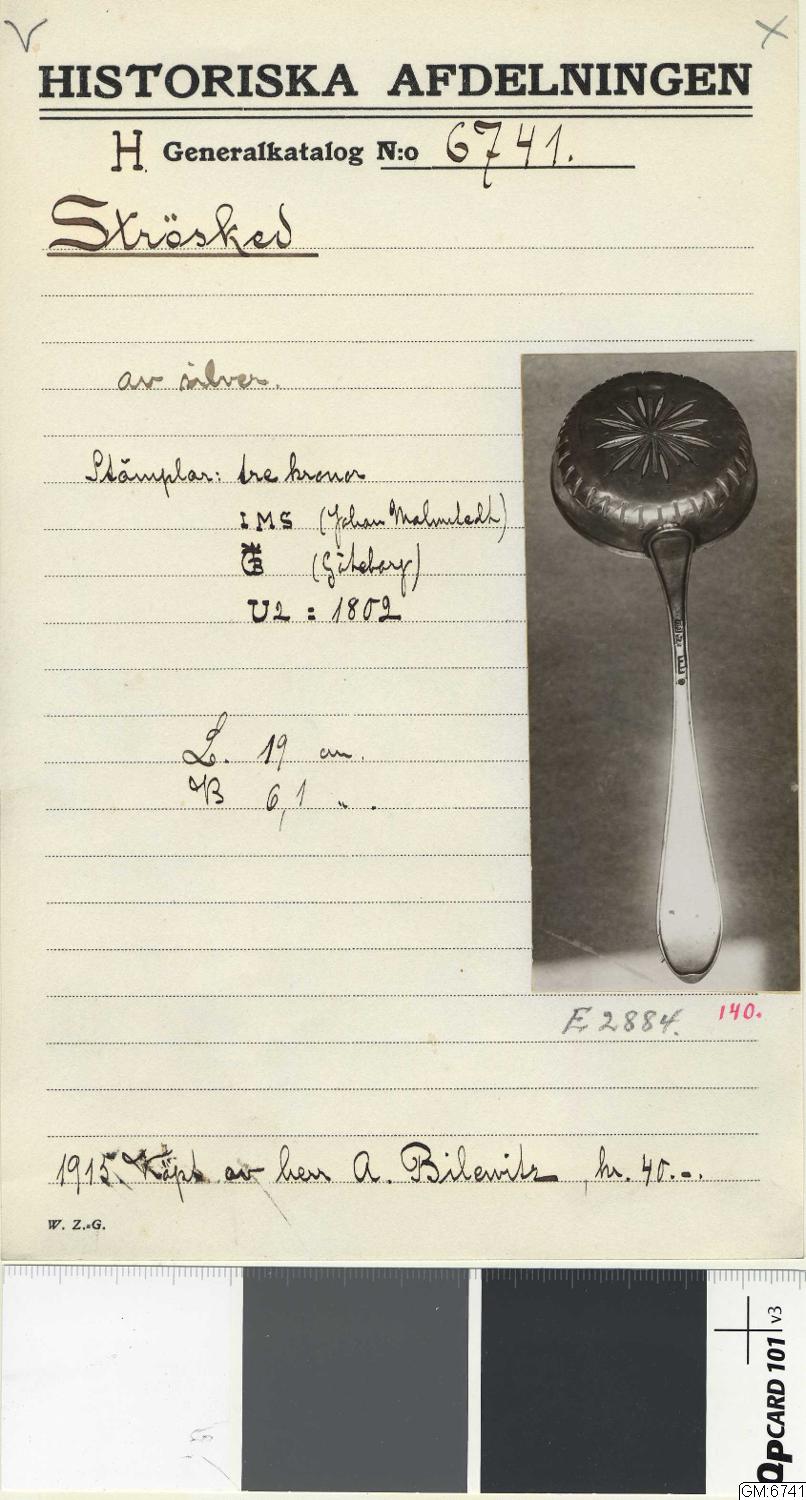 HISTORISKA AFDELNINGEN
H Generalkatalog N:o 6741.
Strösked
av silver.
Stämplar: tre kronor
IMS (Johan Malmstedt)
GB (Göteborg)
U2 = 1802
L. 19 cm.
B 6,1 " .
E 2884. 140.
1915. Köpt av herr A. Bilewitz, kr. 40.-.
W. Z.=G.
QPCARD 101 v3
GM:6741